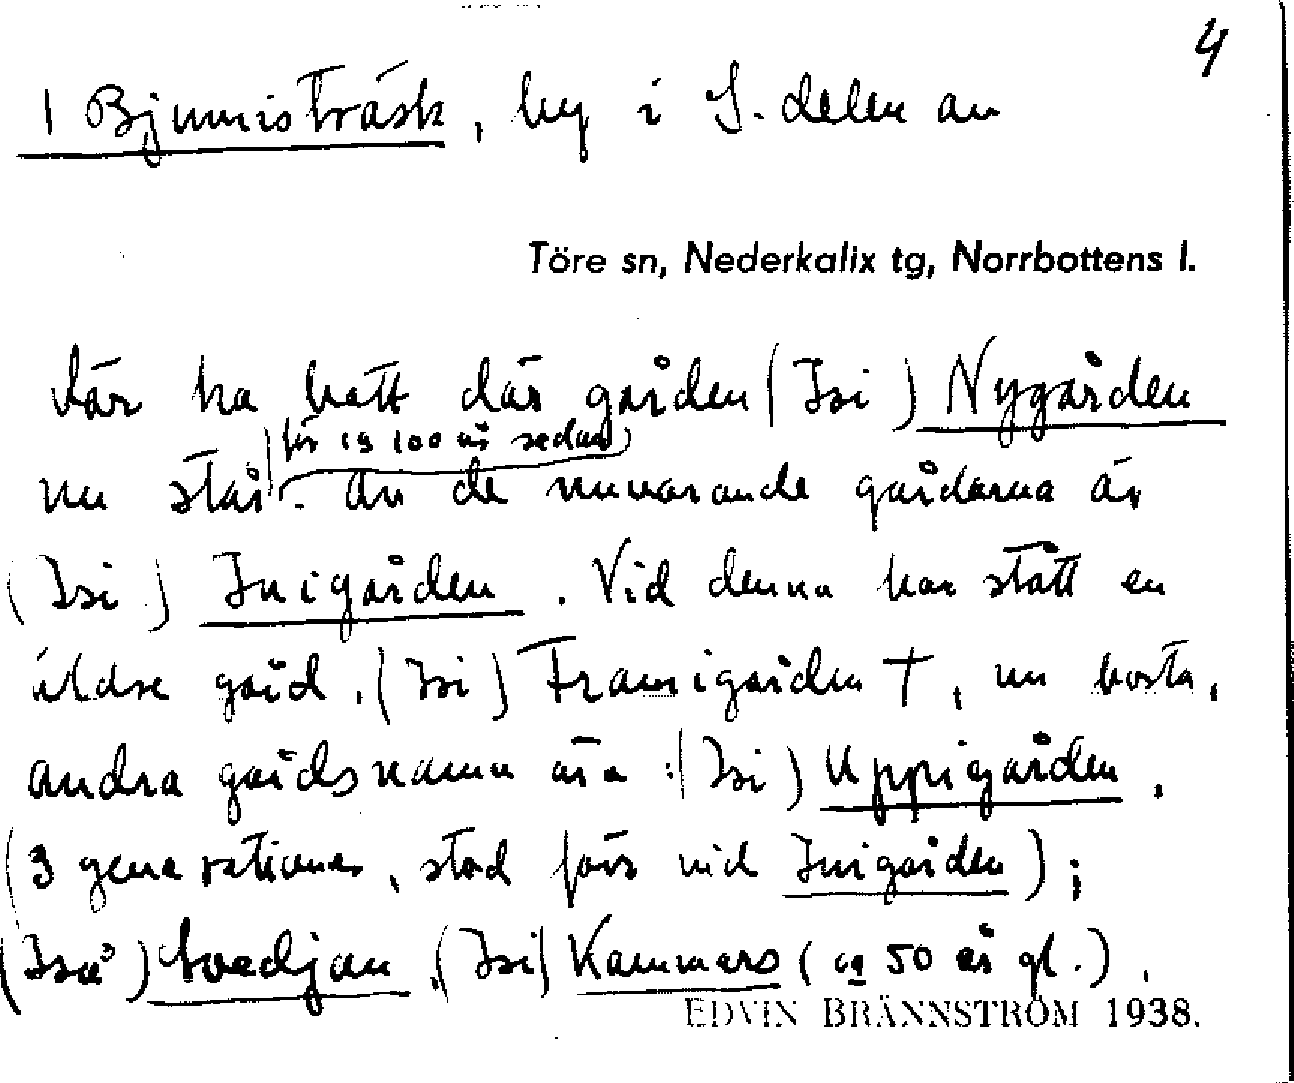 4
1 Bjumisträsk, by i S. delen av
Töre sn, Nederkalix tg, Norrbottens l.
där ha hatt där gården (Isi) Nygården
för ca 100 år sedan
nu står. Av de nuvarande gårdarna är
(Isi) Inigården. Vid denna har stått en
äldre gård, (Isi) Framigården †, nu borta.
andra gårdsnamn äro: (Isi) Uppigården,
(3 generationer, stod förr vid Inigården);
(Isa) Svedjan, (Isi) Kammars (ca 50 år gl.).
EDVIN BRÄNNSTRÖM 1938.